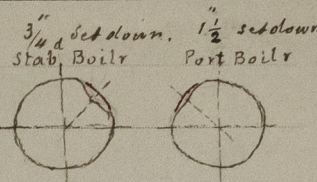 3/4" setdown. 1 1/2" setdown
Stabd Boilr Port Boilr